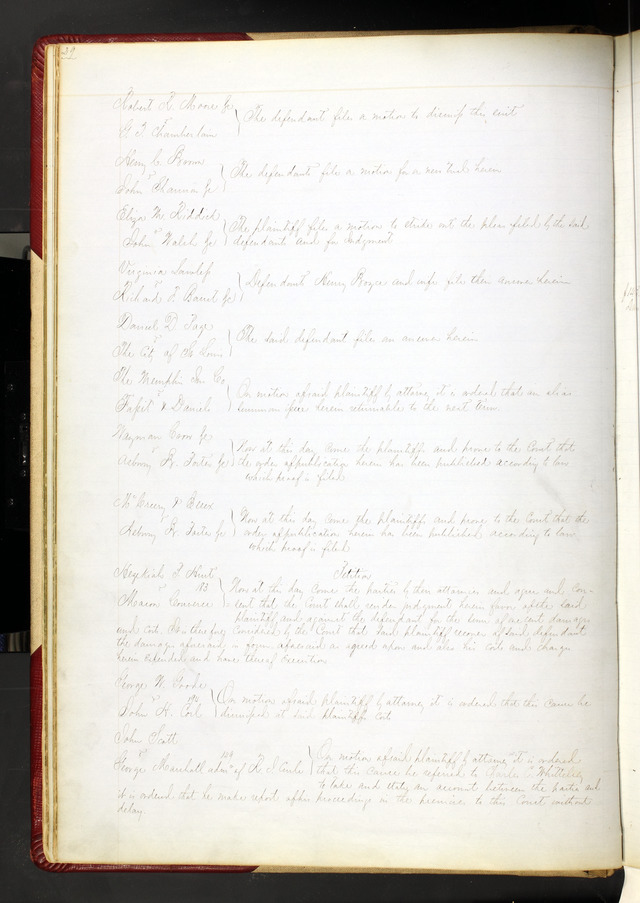 39
Robert K. Moore Jr
vs } The defendant files a motion to dismiss this suit
G. T. Chamberlain
Henry C. Brown
vs } The defendants file a motion for a new trial herein
John Starman Jr
Eliza M. Riddick
vs } The plaintiff files a motion to strike out the plea filed by the said
John Walsh Jr defendants and for Judgment
Virginia
vs } Defendants Henry Boyce and wife file their answer herein
Richard F. Barret Jr
Daniel D. Page
vs } The said defendant files an answer herein
The City of St Louis
The Memphis Ins Co
vs } On motion of said plaintiff by attorney it is ordered that an alias
& Daniels summons issue herein returnable to the next term
Wayman Crow Jr
vs } Now at this day come the plaintiffs and prove to the Court that
Asbury R. Porter Jr the order of publication herein has been published according to law
which proof is filed
McCreery &
vs } Now at this day come the plaintiffs and prove to the Court that the
Asbury R. Porter Jr order of publication herein has been published according to law
which proof is filed
Hezekiah T. Hunt Petition
vs 183 } Now at this day come the parties by their attornies and agree and con-
Mason sent that the Court shall render judgment herein in favor of the said
plaintiff and against the defendant for the sum of as cent damages
and costs. It is therefore Considered by the Court that said plaintiff recover of said defendant
the damages aforesaid in form aforesaid as agreed upon and also his costs and charges
herein expended and have thereof Execution
George W. Goode
vs } On motion of said plaintiff by attorney it is ordered that this cause be
John H. dismissed at said plaintiffs cost
John Scott
vs 154 } On motion of said plaintiff by attorney it is ordered
George Marshall admr of R. J. that this cause be referred to Charles C. Whittelsey
to take and state an account between the parties and
it is ordered that he make report of his proceedings in the premises to this Court without
delay.